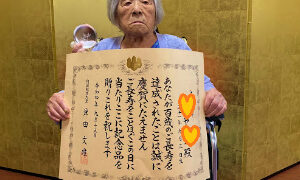 殿
あなたが百歳のご長寿を
達成されたことは誠に
慶賀にたえません
ご長寿をことほぐこの日に
当たりここに記念品を
贈りこれを祝します
内閣総理大臣 岸田文雄